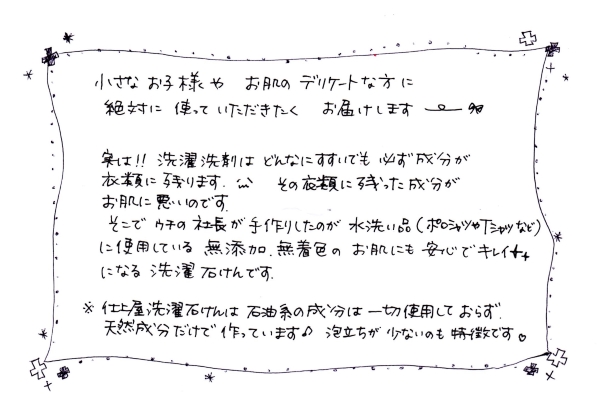 小さなお子様や お肌のデリケートな方に
絶対に使っていただきたく お届けします
実は!! 洗濯洗剤はどんなにすすいでも必ず成分が
衣類に残ります。 その衣類に残った成分が
お肌に悪いのです。
そこでウチの社長が手作りしたのが水洗い品(ポロシャツやTシャツなど)
に使用している無添加.無着色のお肌にも安心でキレイ
になる洗濯石けんです。
※仕上屋洗濯石けんは石油系の成分は一切使用しておらず、
天然成分だけで作っています♪ 泡立ちが少ないのも特徴です♡